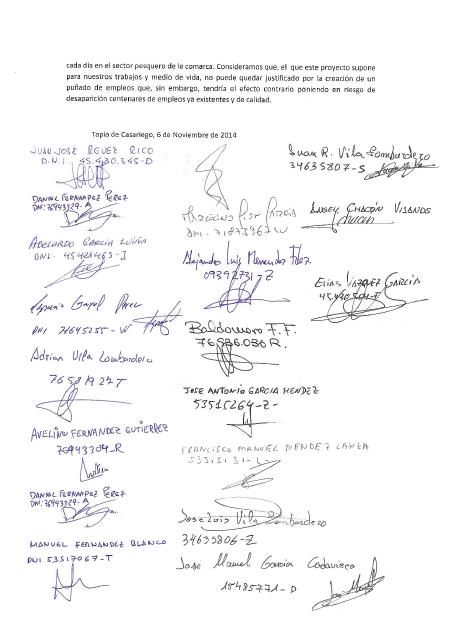 cada día en el sector pesquero de la comarca. Consideramos que, el que este proyecto supone
para nuestros trabajos y medio de vida, no puede quedar justificado por la creación de un
puñado de empleos que, sin embargo, tendría el efecto contrario poniendo en riesgo de
desaparición centenares de empleos ya existentes y de calidad.
Tapia de Casariego, 6 de Noviembre de 2014
JUAN JOSE RICO
D.N.I. 45.430.345-D
DANIEL FERNANDEZ PEREZ
DNI: 76943329-A
ABELARDO GARCIA
DNI.
Perez
DNI 71645255-W
Adrian Vila Lombardero
AVELINO FERNANDEZ GUTIERREZ
76943304-R
DANIEL FERNANDEZ PEREZ
DNI: 76943329-A
MANUEL FERNANDEZ BLANCO
DNI 53517067-T
DNI. 71873367W
Alejandro Luis Menendez Fdez.
Baldomero F. F.
76936.086 R.
JOSE ANTONIO GARCIA MENDEZ
53515264-Z-
FRANCISCO MANUEL MENDEZ
Jose Luis Vila Lombardero
34635806-Z
José Manuel García
15485771-D
Juan R. Vila Lombardero
34635807-S
ANGEL CHACÓN
ELIAS VAZQUEZ GARCIA